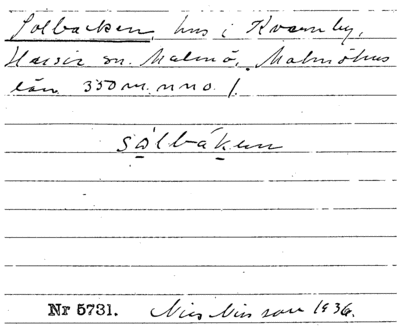 Solbacken, hus i Kvarnby,
sn. Malmö, Malmöhus
län. 350 m. nno.
sólbákenn
Nr 5731. Nils Nilsson 1936.